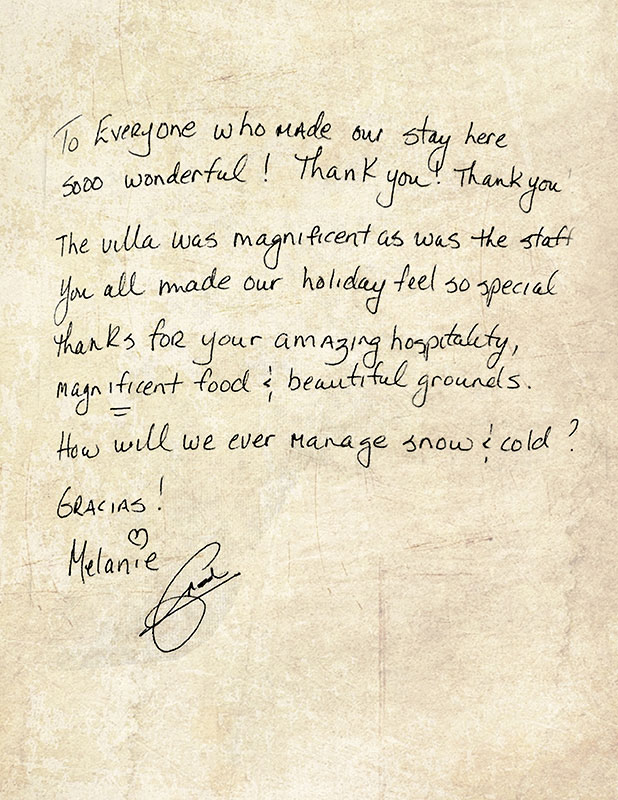 To Everyone who made our stay here
sooo wonderful! Thank you! Thank you
The villa was magnificent as was the staff
You all made our holiday feel so special
thanks for your amazing hospitality,
magnificent food & beautiful grounds.
How will we ever manage snow & cold?
Gracias!
Melanie